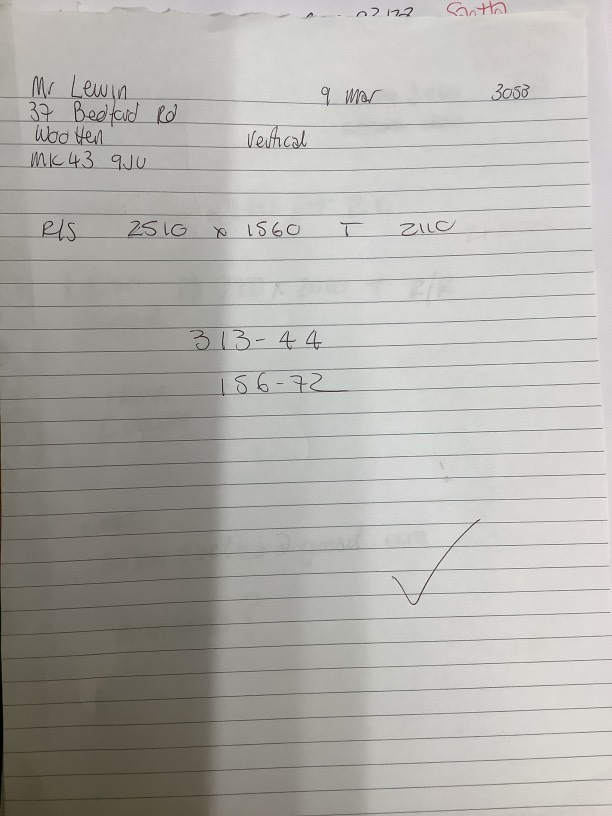 Smith
Mr Lewin 9 Mar 3053
37 Bedford Rd
Wootten Vertical
MK43 9JU
R/S 2510 x 1560 T 2110
313-44
156-72